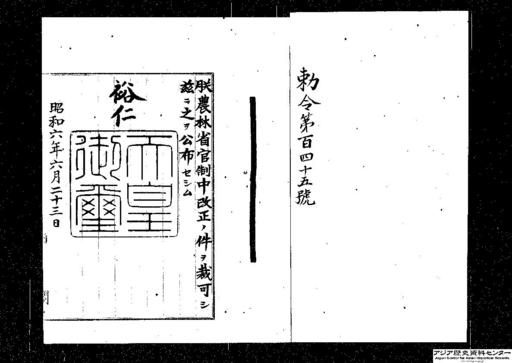 勅令第百四十五號
朕農林省官制中改正ノ件ヲ裁可シ
茲ニ之ヲ公布セシム
裕仁
天皇
御璽
昭和六年六月二十三日
アジア歴史資料センター
Japan Center for Asian Historical Records